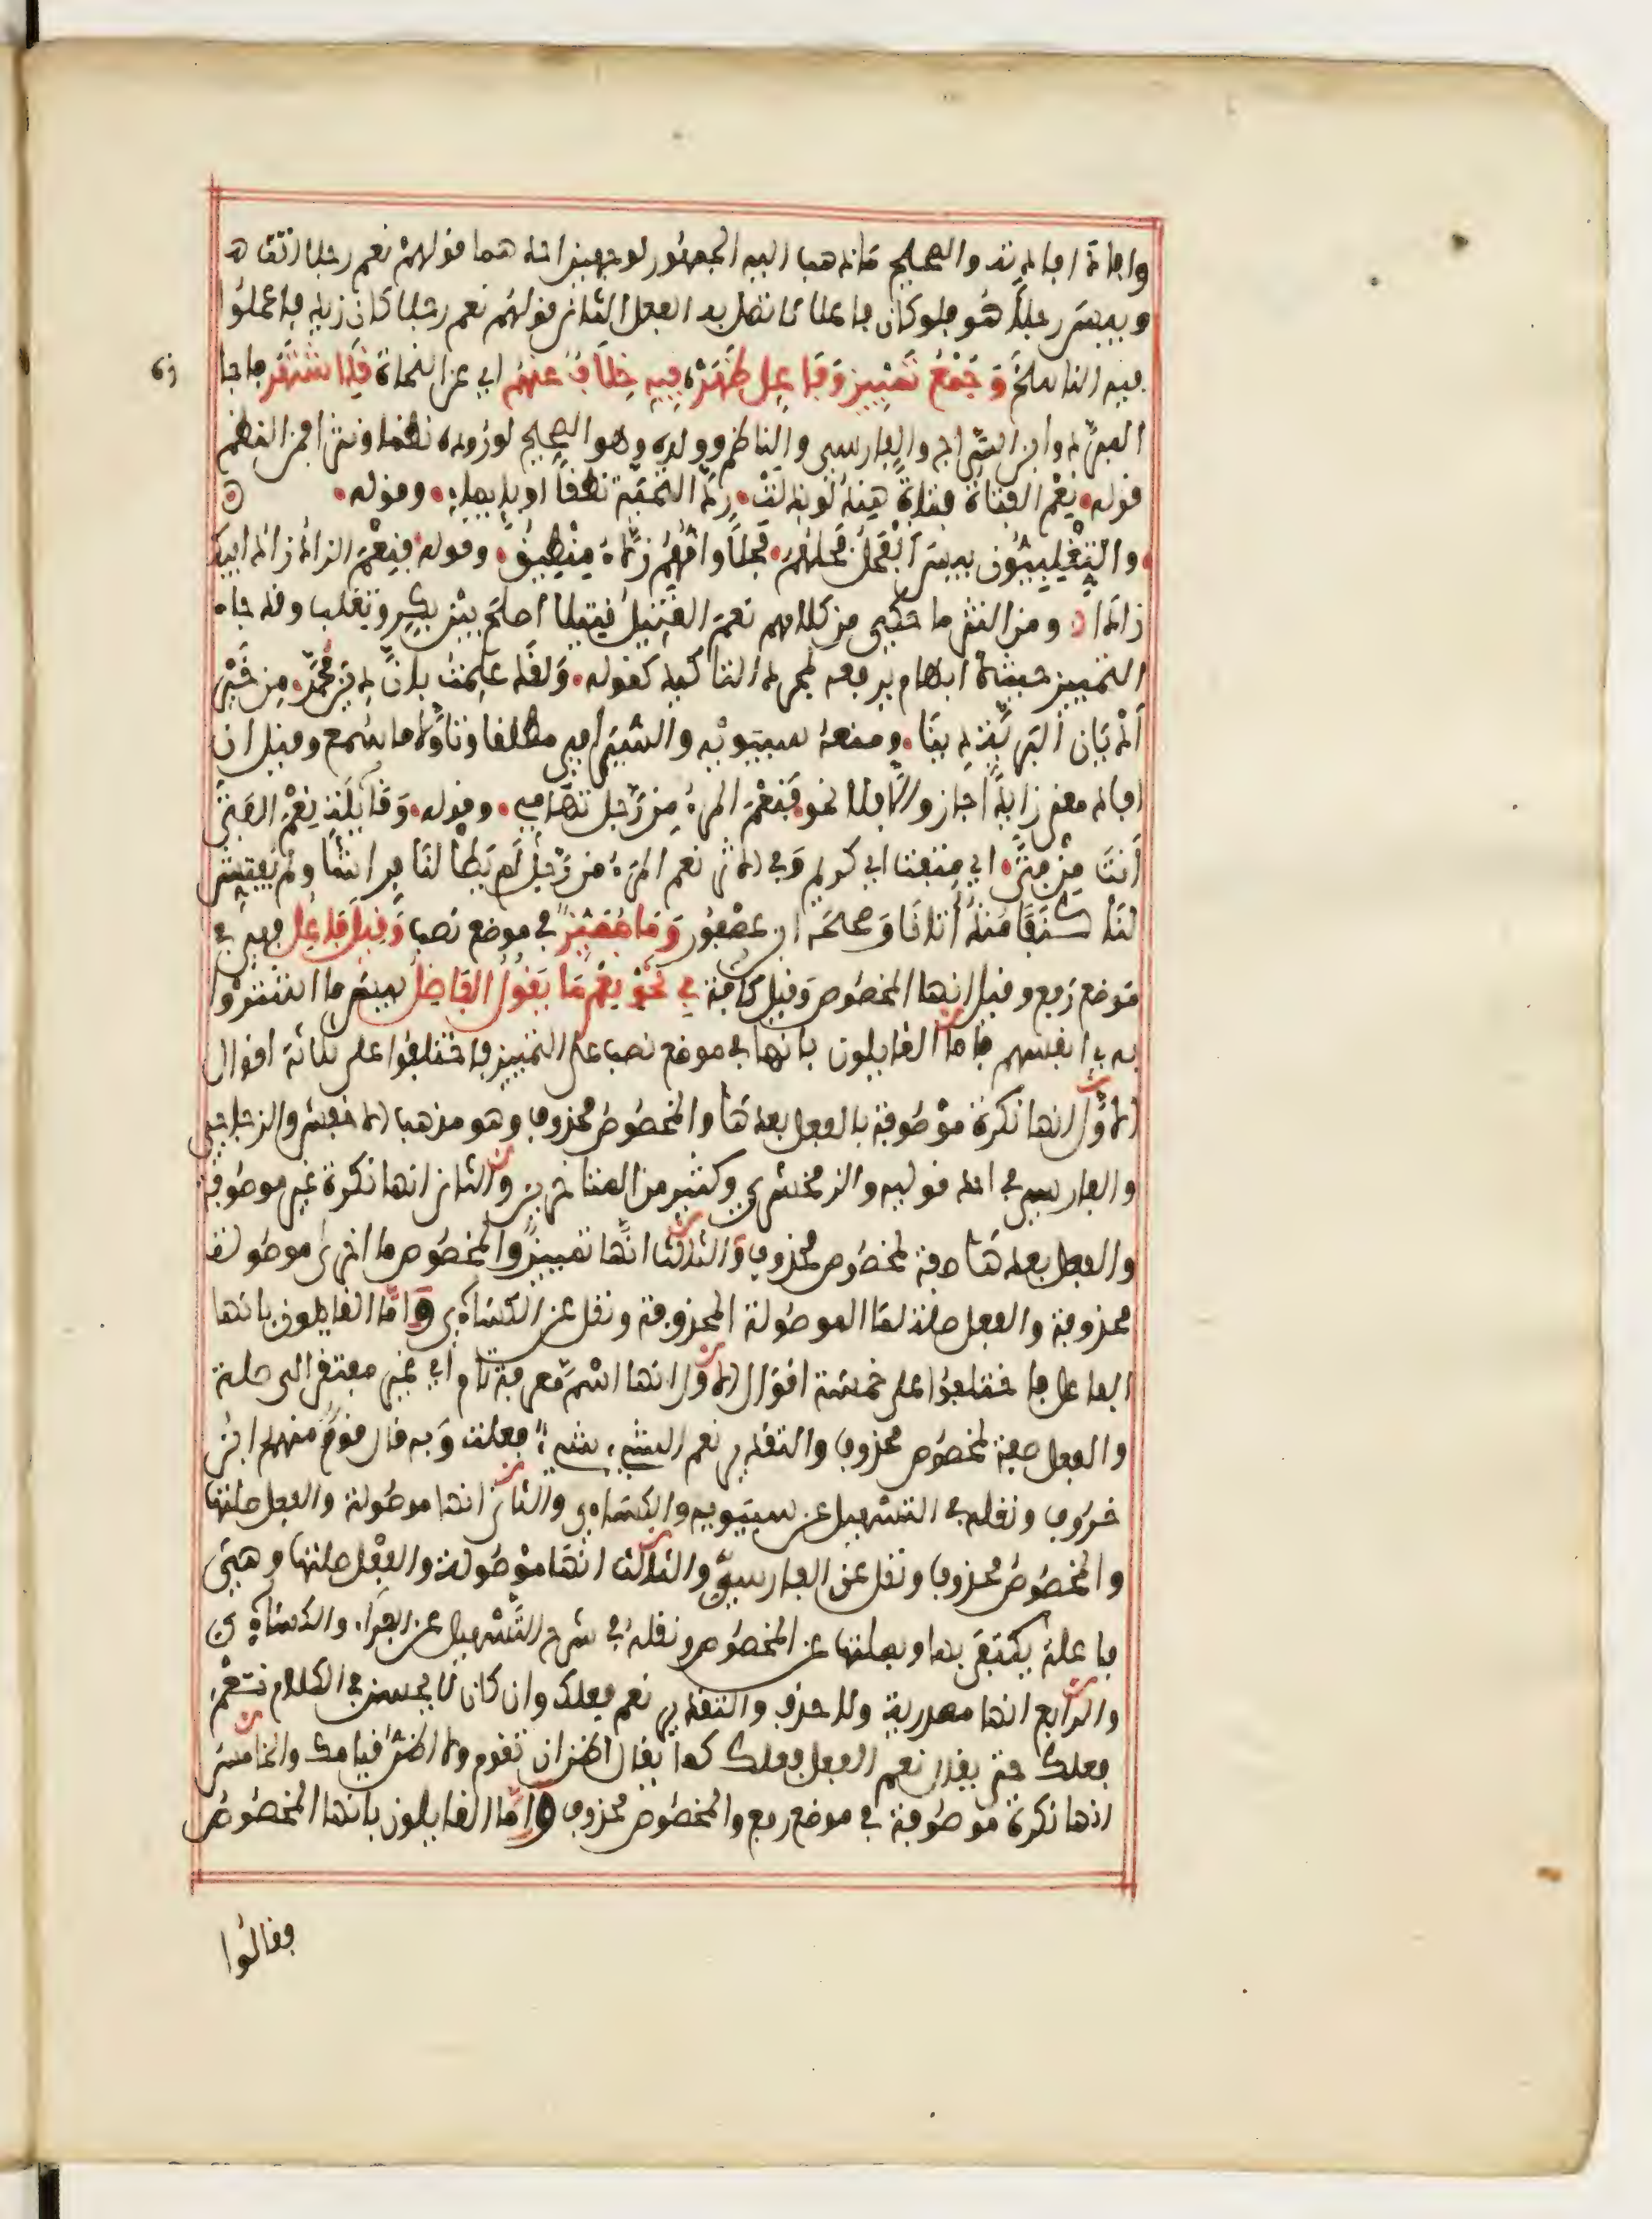 وإفادة افادته والصحيح ما ذهب اليه الجمهور لوجهين احدهما قولهم نعم رجلا انت
وبيس رجلا هو فلو كان فاعلا لاتصل به الفعل الثاني قولهم نعم رجلا كان زيد فاعملوا
فيه الناسخ وَجَمْعُ تَمْيِيزٍ وَفَاعِلٍ ظَهَرْ فِيهِ خِلَافٌ عَنْهُمُ اي عن النحاة قَدِ اشْتَهَرْ فاجا
المبرد وابن السراج والفارسي والناظم وولده وهو الصحيح لوروده نظما ونثرا فمن النظم
قوله نِعْمَ الفتاة فتاةً هندُ لو بذلت رد التحية نطقا او بايماء وقوله
والتَّغْلِبِيُّون بيس الفحل فحلهم فحلا وامهم زلاء منطيق وقوله فنعم الزاد زاد ابيك
زادا ومن النثر ما حكي من كلامهم نعم القتيل قتيلا أصلح بين بكر وتغلب وقد جاء
التمييز حيث لا ابهام يرفعه لمجرد التاكيد كقوله ولقد علمت بان دين محمد من خير
أديان البرية دينا ومنعه سيبويه والسيرافي مطلقا وتاولا ما سمع وقيل ان
افاد معنى زايدا جاز والا فلا نحو فنعم المرء من رجل تهامي وقوله وقايلة نعم الفتى
أنت من فتى اي متفتا اي كريم وفي الاثر نعم المرء من رجل لم يطأ لنا فراشا ولم يفتش
لنا كنفا منذ أتانا وصححه ابن عصفور وَمَا مُمَيِّزٌ في موضع نصب وَقِيلَ فَاعِلُ فهي في
موضع رفع وقيل انها المخصوص وقيل كافة في نَحْوِ نِعْمَ مَا يَقُولُ الفَاضِلُ بيسما اشتروا
به انفسهم فاما القايلون بانها في موضع نصب على التمييز فاختلفوا على ثلاثة اقوال
الاول انها نكرة موصوفة بالفعل بعدها والمخصوص محذوف وهو مذهب الاخفش والزجاجي
والفارسي في احد قوليه والزمخشري وكثير من المتاخرين والثاني انها نكرة غير موصوفة
والفعل بعدها صفة لمخصوص محذوف والثالث انها تمييز والمخصوص ما اخرى موصولة
محذوفة والفعل صلة لما الموصولة المحذوفة ونقل عن الكسائي واما القايلون بانها
الفاعل فاختلفوا على خمسة اقوال الاول انها اسم معرفة تام اي غير مفتقر الى صلة
والفعل صفة لمخصوص محذوف والتقدير نعم الشيء شيء فعلت وبه قال قوم منهم ابن
خروف ونقله في التسهيل عن سيبويه والكسائي والثاني انها موصولة والفعل صلتها
والمخصوص محذوف ونقل عن الفارسي والثالث انها موصولة والفعل صلتها وهي
فاعلة يكتفى بها وبصلتها عن المخصوص ونقله في شرح التسهيل عن الفراء والكسائي
والرابع انها مصدرية ولا حذف والتقدير نعم فعلك وان كان لا يحسن في الكلام نعم
فعلك حتى يقال نعم الفعل فعلك كما يقال اظن ان تقوم ولا اظن قيامك والخامس
انها نكرة موصوفة في موضع رفع والمخصوص محذوف واما القايلون بانها المخصوص
فقالوا